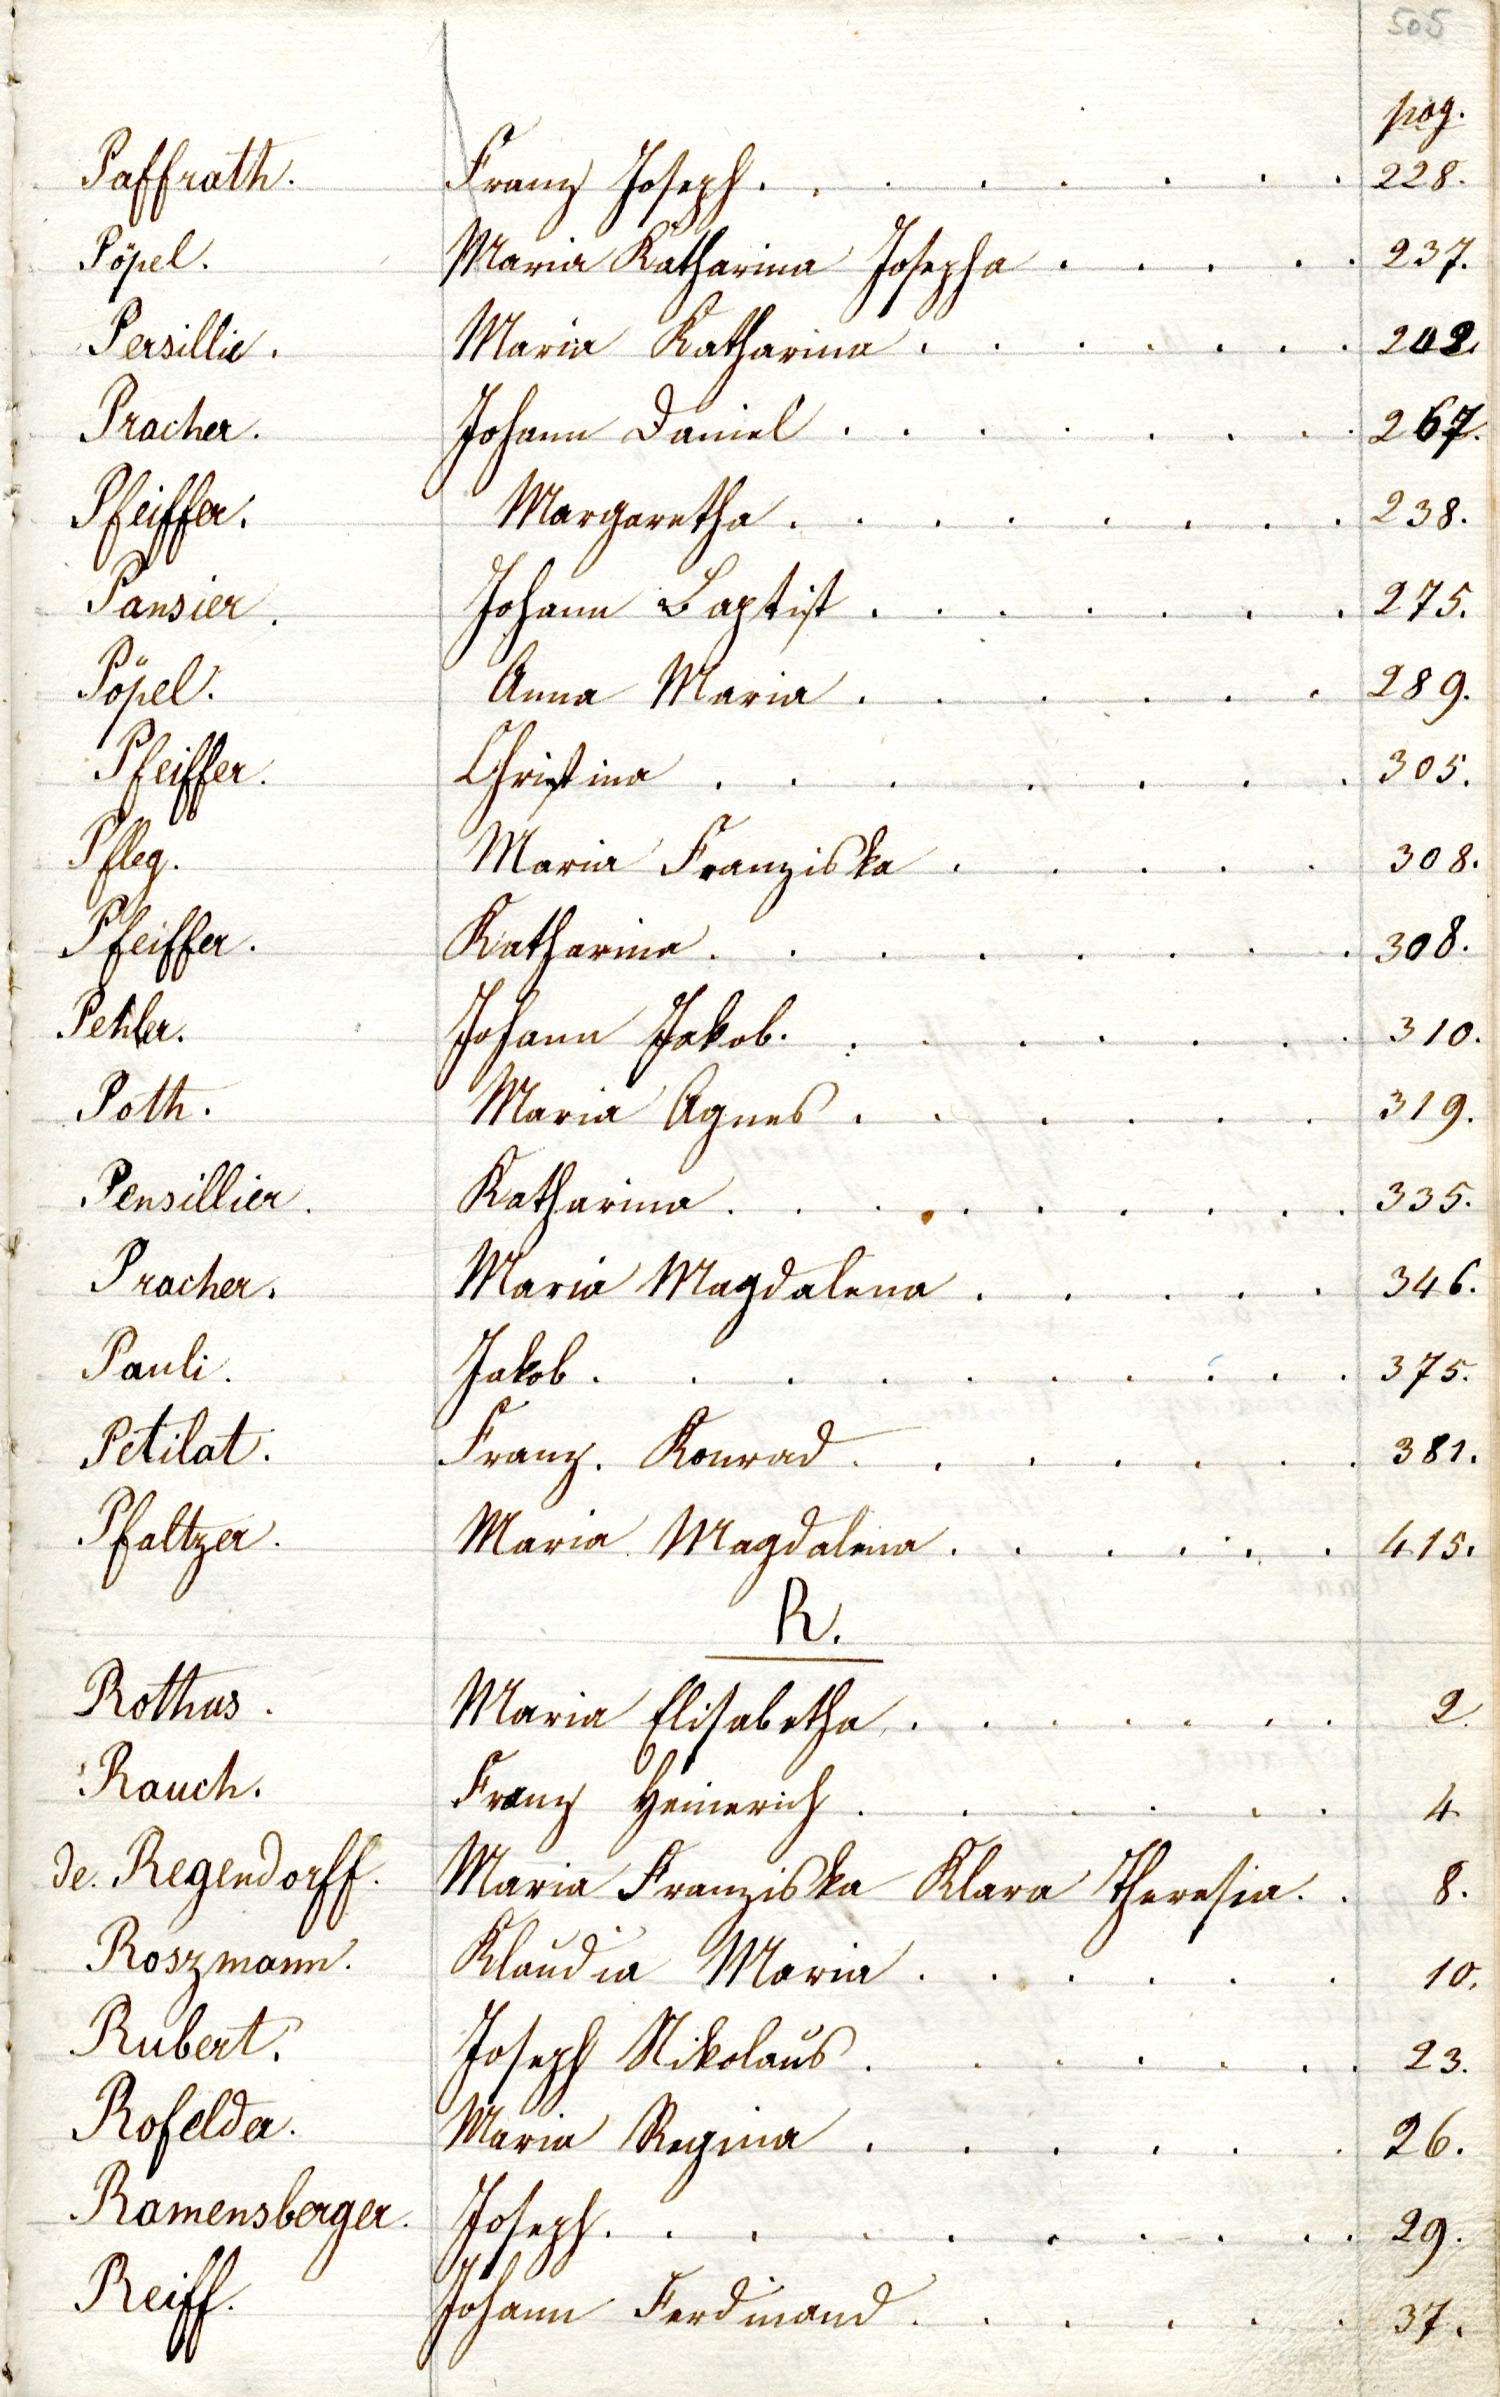 505
pag.
Paffrath. Franz Joseph. . . . . . . . 228.
Pöpel. Maria Katharina Josepha . . . . . 237.
Persillie. Maria Katharina . . . . . . . 202.
Pracher. Johann Daniel . . . . . . . 267.
Pfeiffer. Margaretha . . . . . . . 238.
Pansier. Johann Baptist . . . . . . . 275.
Pöpel. Anna Maria . . . . . . 289.
Pfeiffer. Christina . . . . . . . 305.
Pfleg. Maria Franziska . . . . . 308.
Pfeiffer. Katharina . . . . . . . . 308.
Pehler. Johann Jakob. . . . . . . . 310.
Poth. Maria Agnes . . . . . . 319.
Pensillier. Katharina . . . . . . . . 335.
Pracher. Maria Magdalena . . . . . 346.
Pauli. Jakob . . . . . . . . . 375.
Petilat. Franz. Konrad . . . . . . . 381.
Pfaltzer. Maria Magdalena . . . . . . 415.
R.
Rothus. Maria Elisabetha . . . . . . . 2.
Rauch. Franz Heinerich . . . . . . 4
de. Regendorff. Maria Franziska Klara Theresia. . 8.
Roszmann. Klaudia Maria . . . . . . 10.
Rubert. Joseph Nikolaus . . . . . . . 23.
Rofelder. Maria Regina . . . . . . 26.
Ramensberger. Joseph. . . . . . . . . 29.
Reiff. Johann Ferdinand . . . . . . 37.